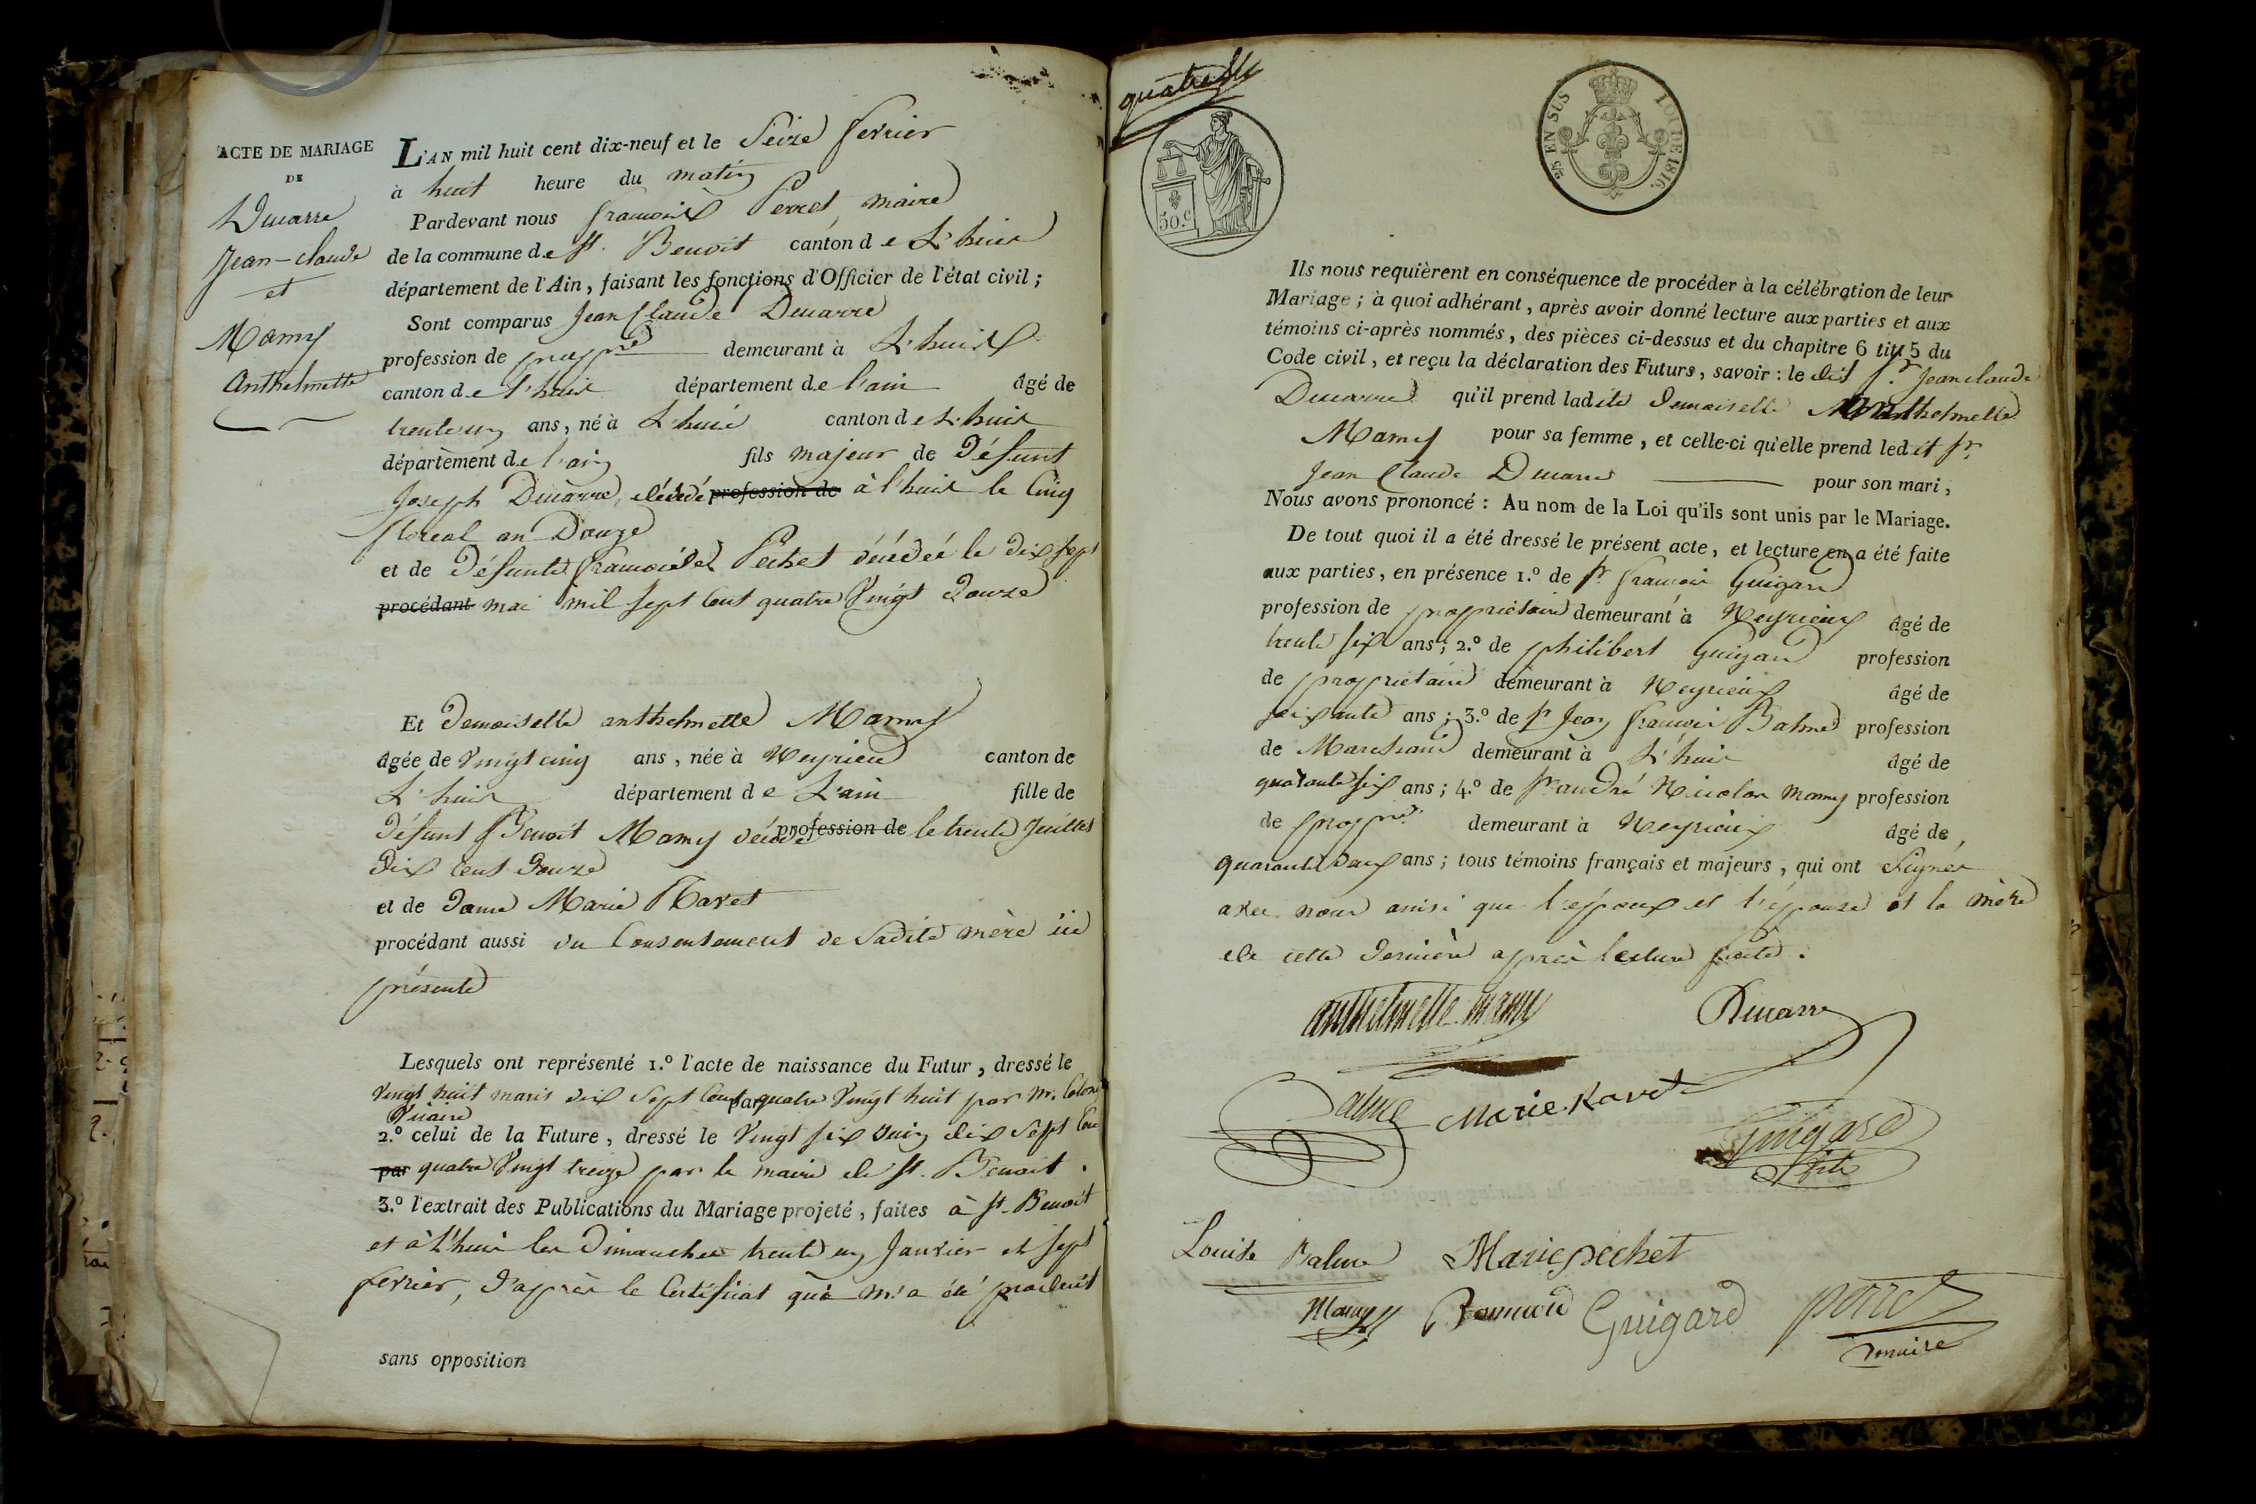 ACTE DE MARIAGE
DE
Ducarre
Jean-claude
et
Mamy
Anthelmette
L'AN mil huit cent dix-neuf et le Seize fevrier
à huit heure du matin
Pardevant nous francois Perret, maire
de la commune de St. Benoit canton de L'huis
département de l'Ain, faisant les fonctions d'Officier de l'état civil;
Sont comparus Jean Claude Ducarre
profession de propre demeurant à L'huis
canton de l'huis département de l'ain âgé de
trente un ans, né à L'huis canton de L'huis
département de l'ain fils majeur de Défunt
Joseph Ducarre, décédé profession de à l'huis le Cinq
floreal an Douze
et de Défunte francoise Pechet décédée le dix sept
procédant mai mil sept cent quatre Vingt Douze
Et Demoiselle anthelmette Mamy
âgée de Vingt cinq ans, née à Neyrieu canton de
L'huis département de L'ain fille de
Défunt Benoit Mamy décédé profession de le trente Juillet
Dix cent Douze
et de Dame Marie Ravet
procédant aussi du Consentement de Sadite mère ici
présente
Lesquels ont représenté 1.º l'acte de naissance du Futur, dressé le
Vingt huit mars dix Sept Cent par quatre Vingt huit par Mr.
Vicaire
2.º celui de la Future, dressé le Vingt six Juin dix Sept Cent
par quatre Vingt treize par le maire de St. Benoit.
3.º l'extrait des Publications du Mariage projeté, faites à St. Benoit
et à L'huis les Dimanches trente un Janvier et sept
fevrier, D'après le Certificat qui m'a été produit
sans opposition
quatre
50.c
25 EN SUS
LOI DE 1816.
Ils nous requièrent en conséquence de procéder à la célébration de leur
Mariage; à quoi adhérant, après avoir donné lecture aux parties et aux
témoins ci-après nommés, des pièces ci-dessus et du chapitre 6 titr 5 du
Code civil, et reçu la déclaration des Futurs, savoir: le dit Sr. Jean claude
Ducarre qu'il prend ladite Demoiselle anthelmette
Mamy pour sa femme, et celle-ci qu'elle prend ledit Sr.
Jean Claude Ducarre pour son mari,
Nous avons prononcé: Au nom de la Loi qu'ils sont unis par le Mariage.
De tout quoi il a été dressé le présent acte, et lecture en a été faite
aux parties, en présence 1.º de Sr francois Guigard
profession de propriétaire demeurant à Neyrieux âgé de
trente six ans; 2.º de philibert Guigard profession
de propriétaire demeurant à Neyrieux âgé de
soixante ans; 3.º de Sr Jean francois Balme profession
de Marchand demeurant à L'huis âgé de
quarante six ans; 4.º de Sr andré Nicolas mamy profession
de propre. demeurant à Neyrieux âgé de
quarante deux ans; tous témoins français et majeurs, qui ont Signés
avec nous ainsi que l'époux et l'épouse et la mère
de cette dernière après lecture faite.
anthelmette mamy Ducarre
Balme Marie Ravet Guigard
fils
Louise Balme Marie pechet
Mamy Guigard perret
maire